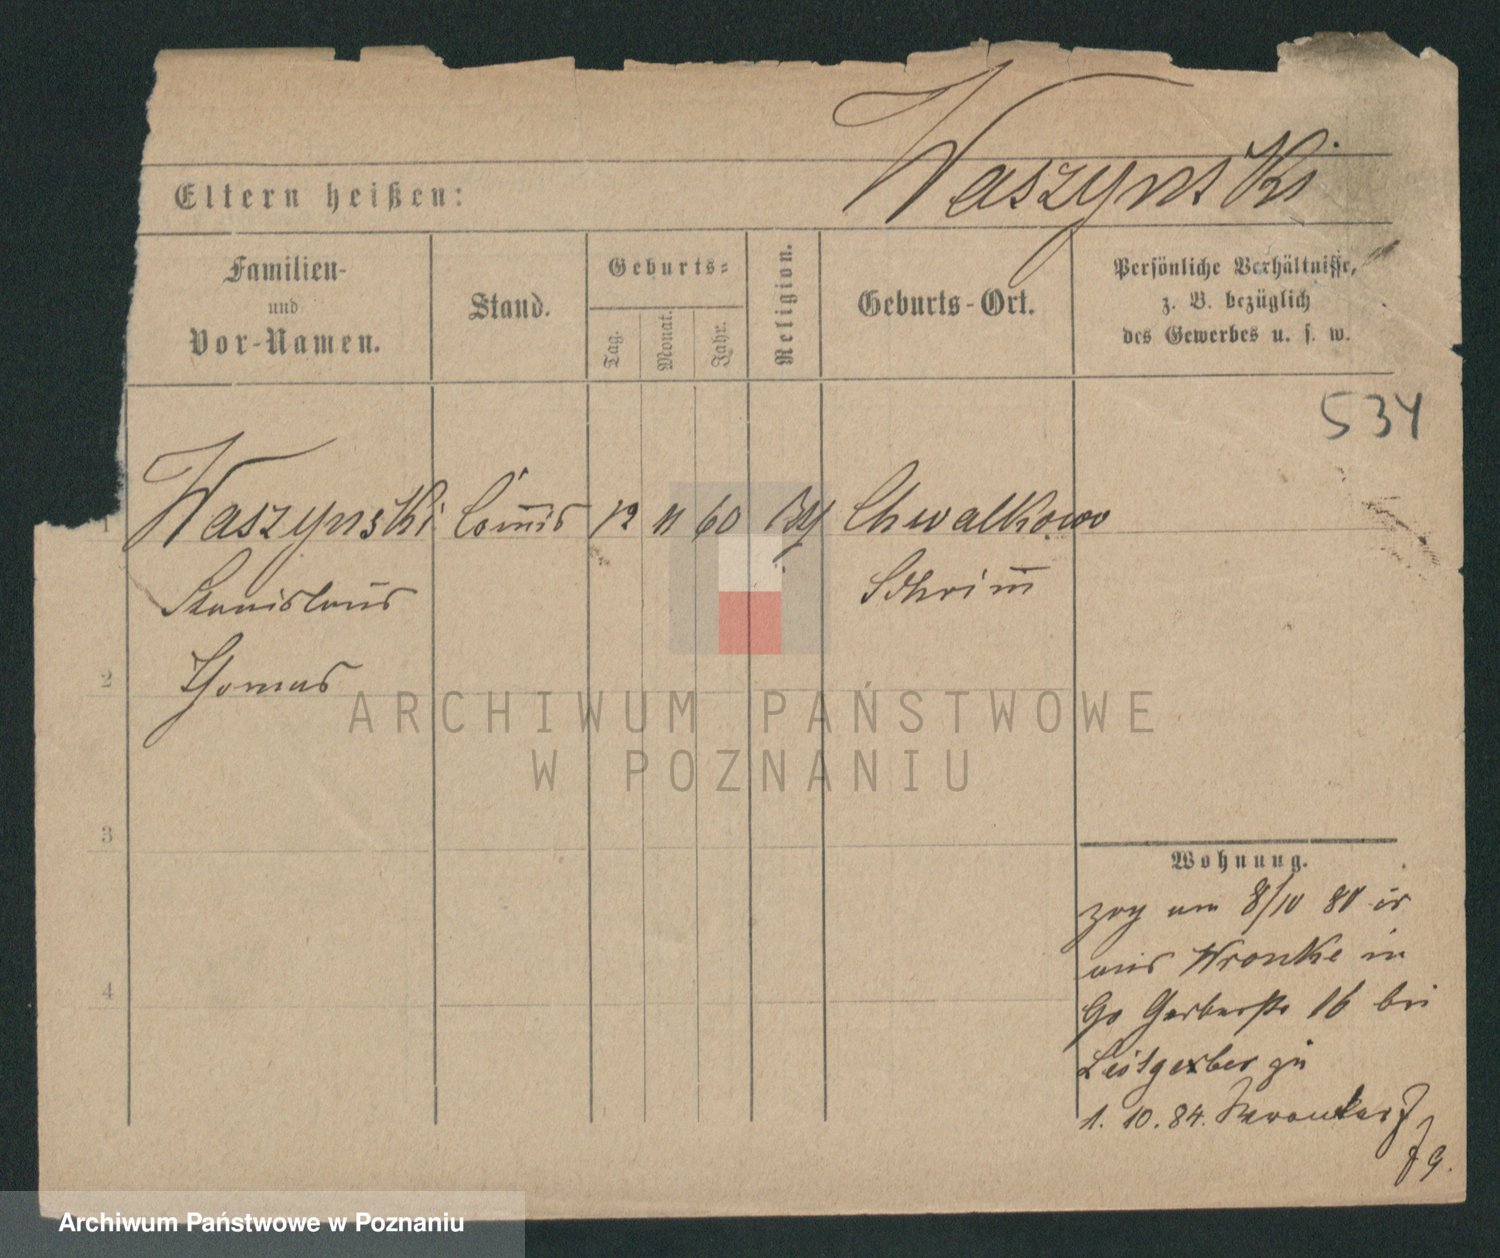 Waszynski
Eltern heißen:
Familien-
und
Vor-Namen.
Stand.
Geburts-
Tag.
Monat.
Jahr.
Religion.
Geburts-Ort.
Persönliche Verhältnisse,
z. B. bezüglich
des Gewerbes u. s. w.
534
1 Waszynski Com̅is 12 11 60 Chwalkowo
Stanislaus Schrim̅
Thomas
2
3
4
Wohnung.
zog am 8/10 80
aus Wronke in
Gr Gerberstr 16 bei
Leitgeber zu
1. 10. 84.
ARCHIWUM PAŃSTWOWE
W POZNANIU
Archiwum Państwowe w Poznaniu